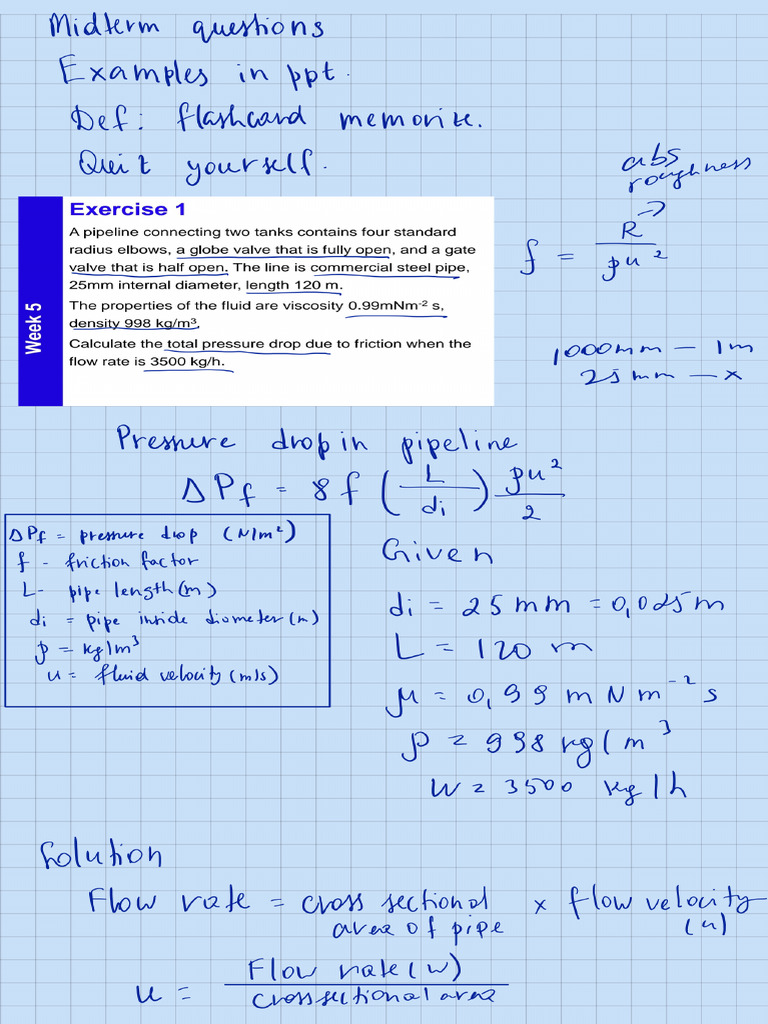 Midterm questions
Examples in ppt.
Def: flashcard memorize.
Quit yourself.
abs
roughness
Exercise 1
A pipeline connecting two tanks contains four standard
radius elbows, a globe valve that is fully open, and a gate
valve that is half open. The line is commercial steel pipe,
25mm internal diameter, length 120 m.
The properties of the fluid are viscosity 0.99mNm-² s,
density 998 kg/m³.
Calculate the total pressure drop due to friction when the
flow rate is 3500 kg/h.
Week 5
f = R / ρu²
1000mm — 1m
25 mm — x
Pressure drop in pipeline
ΔPf = 8f (L/di) ρu²/2
ΔPf = pressure drop (N/m²)
f - friction factor
L- pipe length (m)
di = pipe inside diometer (m)
ρ = kg/m³
u = fluid velocity (m/s)
Given
di = 25 mm = 0,025 m
L = 120 m
μ = 0,99 m N m⁻² s
ρ = 998 kg/m³
W = 3500 kg/h
Solution
Flow rate = cross sectional area of pipe × flow velocity (u)
u = Flow rate (w) / cross sectional area